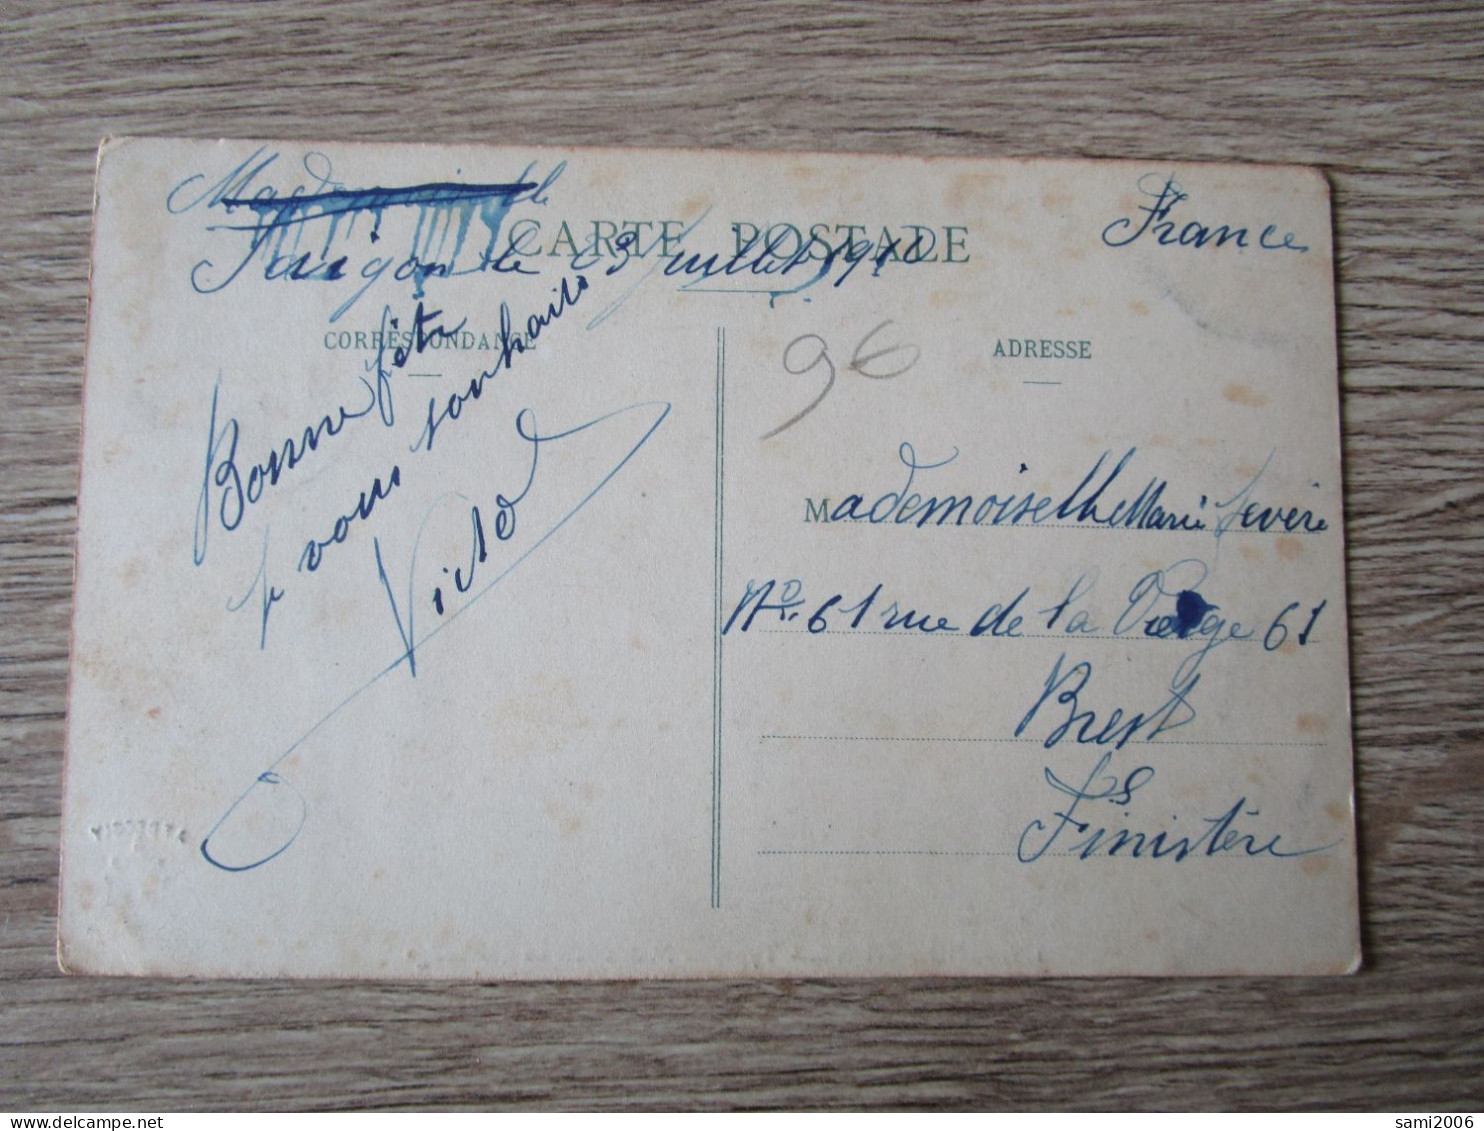 Mademoiselle
France
CARTE POSTALE
Saigon le 03 juillet 1910
CORRESPONDANCE
ADRESSE
96
Bonne fête
je vous souhaite
Victor
Mademoiselle Marie
No. 61 rue de la Vierge 61
Brest
Finistère
sami2006